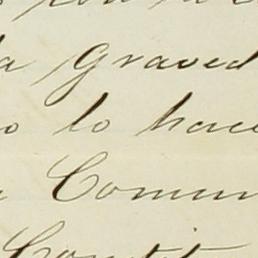 a graved
o lo hace
Comun
Constit